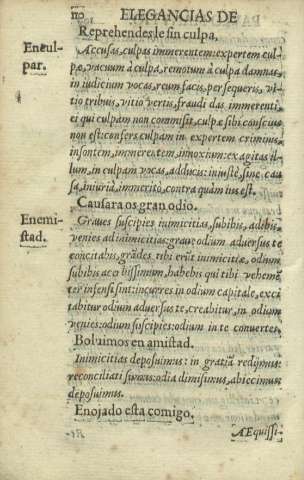 110 ELEGANCIAS DE
Reprehendes,le sin culpa,
Encul-
par.
Accusas, culpas immerentem: expertem cul-
pæ, vacuum à culpa, remotum à culpa damnas,
in iudicium vocas, reum facis, persequeris, vi-
tio tribuis, vitio vertis, fraudi das immerenti:
ei qui culpam non commisit, culpæ sibi conscius
non est: confers culpam in expertem criminis,
insontem, immerentem, innoxium: exagitas il-
lum, in culpam vocas, adducis: iniustè, sine cau
sa, iniuriâ, immeritò, contra quàm ius est.
Causara os gran odio.
Enemi-
stad.
Graues suscipies inimicitias, subibis, adebis,
venies ad inimicitias: graue odium aduersus te
concitabis, grades tibi erūt inimicitiæ, odium
subibis acerbissimum, habebis qui tibi vehemē
ter infensi sint: incurres in odium capitale, exci
tabitur odium aduersus te, creabitur, in odium
venies: odium suscipies: odium in te conuertes.
Boluimos en amistad.
Inimicitias deposuimus: in gratiā redijmus:
reconciliati sumus: odia dimisimus, abiecimus:
deposuimus.
Enojado esta comigo.
Æquissi-